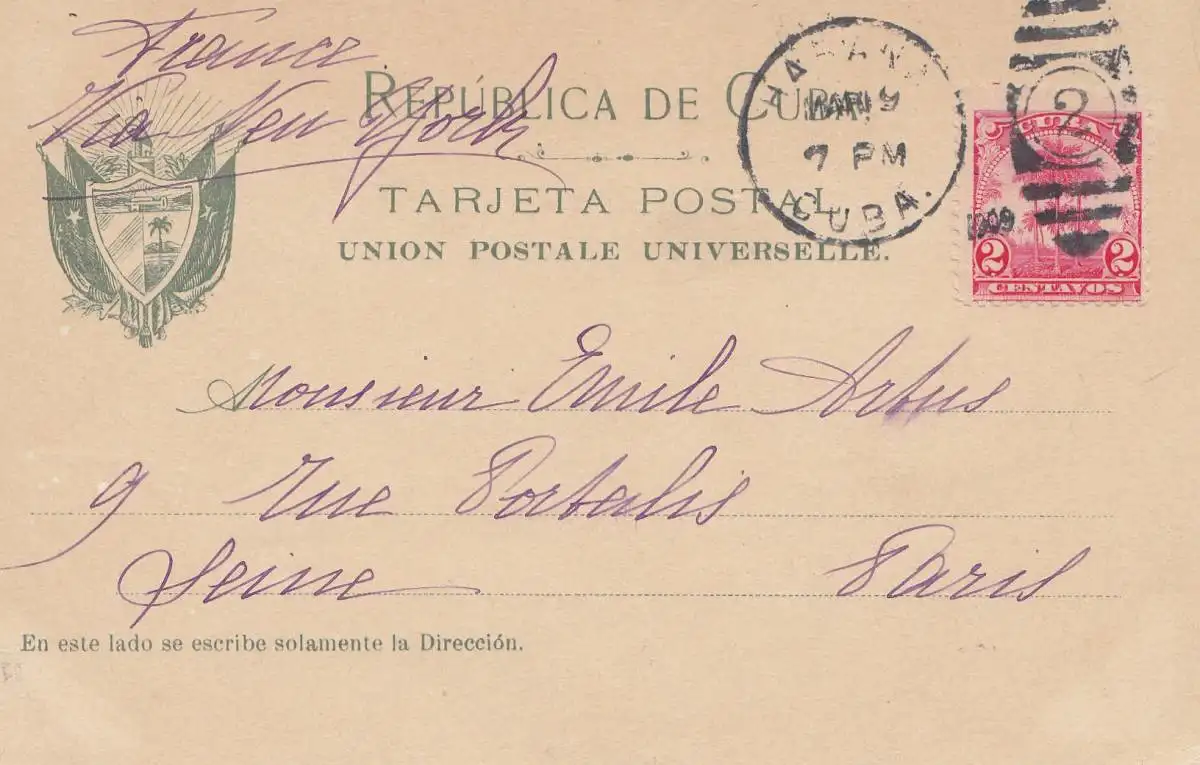 France
Via New York
REPÚBLICA DE CUBA
TARJETA POSTAL
UNION POSTALE UNIVERSELLE.
HABANA
7 PM
CUBA.
2
CUBA
1909
2 2
CENTAVOS
Monsieur Emile Arbus
9 Rue Portalis
Seine Paris
En este lado se escribe solamente la Dirección.